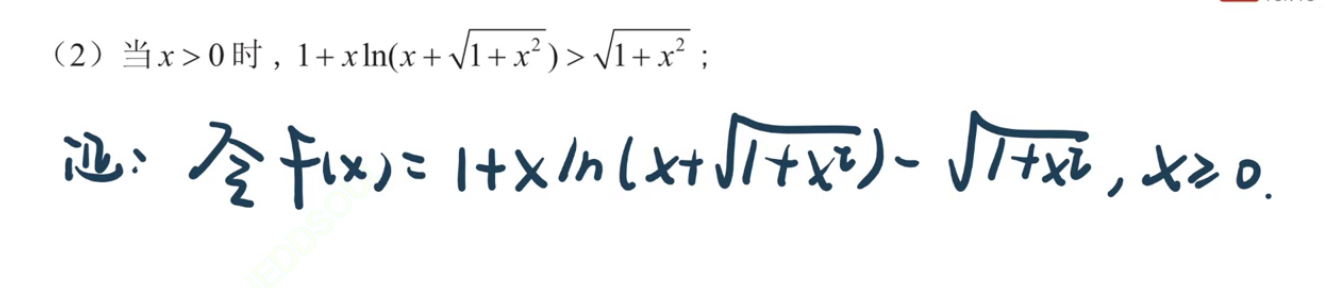 （2）当 x > 0 时，1 + x ln(x + √(1 + x²)) > √(1 + x²)；
证：令 f(x) = 1 + x ln(x + √(1 + x²)) - √(1 + x²), x ≥ 0.